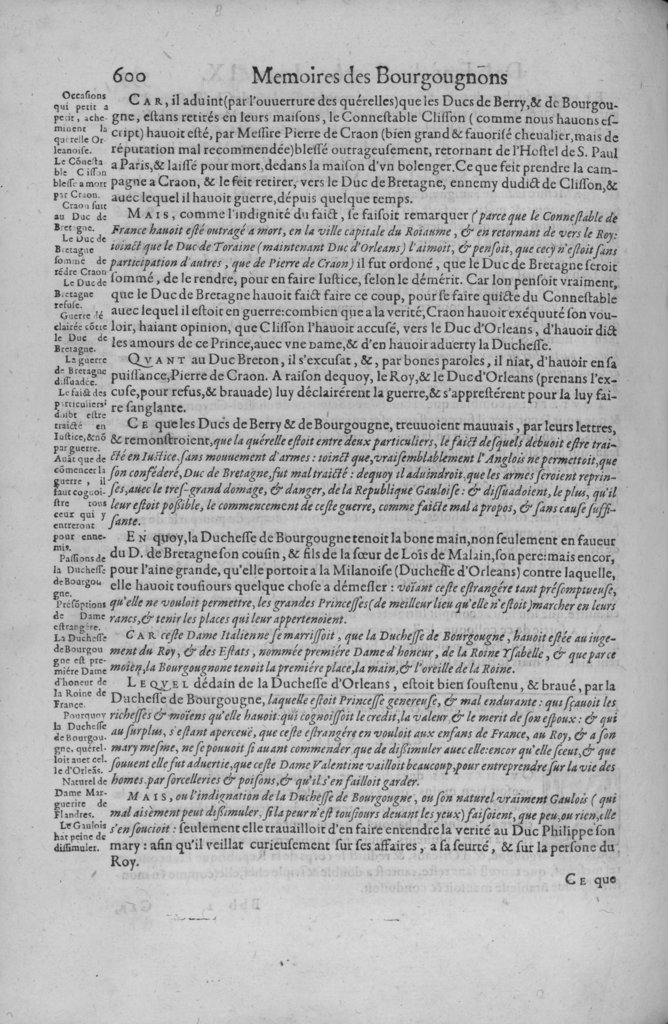 600 Memoires des Bourgougnōns
CAR, il aduint (par l'ouuerture des quérelles) que les Ducs de Berry, & de Bourgou-
gne, estans retirés en leurs maisons, le Connestable Clisson ( comme nous hauons es-
cript) hauoit esté, par Messire Pierre de Craon (bien grand & fauorisé cheualier, mais de
réputation mal recommendée) blessé outrageusement, retornant de l'Hostel de S. Paul
a Paris, & laissé pour mort, dedans la maison d'vn bolenger. Ce que feit prendre la cam-
pagne a Craon, & le feit retirer, vers le Duc de Bretagne, ennemy dudict de Clisson, &
auec lequel il hauoit guerre, dépuis quelque temps.
MAIS, comme l'indignité du faict, se faisoit remarquer (parce que le Connestable de
France hauoit esté outragé a mort, en la ville capitale du Roiaume, & en retornant de vers le Roy:
ioinct que le Duc de Toraine (maintenant Duc d'Orleans) l'aimoit, & pensoit, que cecy n'estoit sans
participation d'autres, que de Pierre de Craon) il fut ordoné, que le Duc de Bretagne seroit
sommé, de le rendre, pour en faire Iustice, selon le démérit. Car lon pensoit vraiment,
que le Duc de Bretagne hauoit faict faire ce coup, pour se faire quicte du Connestable
auec lequel il estoit en guerre: combien que a la verité, Craon hauoit exéquuté son vou-
loir, haiant opinion, que Clisson l'hauoit accusé, vers le Duc d'Orleans, d'hauoir dict
les amours de ce Prince, auec vne Dame, & d'en hauoir aduerty la Duchesse.
QVANT au Duc Breton, il s'excusat, &, par bones paroles, il niat, d'hauoir en sa
puissance, Pierre de Craon. A raison dequoy, le Roy, & le Duc d'Orleans (prenans l'ex-
cuse, pour refus, & brauade) luy déclairérent la guerre, & s'apprestérent pour la luy fai-
re sanglante.
CE que les Ducs de Berry & de Bourgougne, treuuoient mauuais, par leurs lettres,
& remonstroient, que la quérelle estoit entre deux particuliers, le faict desquels debuoit estre trai-
cté en Iustice, sans mouuement d'armes : ioinct que, vraisemblablement l'Anglois ne permettoit, que
son conféderé, Duc de Bretagne, fut mal traicté : dequoy il aduindroit, que les armes seroient reprin-
ses, auec le tres-grand domage, & danger, de la Republique Gauloise : & dissuadoient, le plus, qu'il
leur estoit possible, le commencement de ceste guerre, comme faicte mal a propos, & sans cause suffi-
sante.
EN quoy, la Duchesse de Bourgougne tenoit la bone main, non seulement en faueur
du D. de Bretagne son cousin, & fils de la sœur de Loïs de Malain, son pere: mais encor,
pour l'aine grande, qu'elle portoit a la Milanoise (Duchesse d'Orleans) contre laquelle,
elle hauoit tousiours quelque chose a démesler : voïant ceste estrangére tant présomptueuse,
qu'elle ne vouloit permettre, les grandes Princesses (de meilleur lieu qu'elle n'estoit) marcher en leurs
rancs, & tenir les places qui leur appertenoient.
CAR ceste Dame Italienne se marrissoit, que la Duchesse de Bourgougne, hauoit estée au iuge-
ment du Roy, & des Estats, nommée première Dame d'honeur, de la Roine Ysabelle, & que par ce
moïen, la Bourgougnone tenoit la premiére place, la main, & l'oreille de la Roine.
LEQVEL dédain de la Duchesse d'Orleans, estoit bien soustenu, & braué, par la
Duchesse de Bourgougne, laquelle estoit Princesse genereuse, & mal endurante : qui sçauoit les
richesses & moïens qu'elle hauoit: qui cognoissoit le credit, la valeur, & le merit de son espoux : & qui
au surplus, s'estant aperceuë, que ceste estrangére en vouloit aux enfans de France, au Roy, & a son
mary mesme, ne se pouuoit si auant commender que de dissimuler auec elle: encor qu'elle sceut, & que
souuent elle fut aduertie, que ceste Dame Valentine vailloit beaucoup, pour entreprendre sur la vie des
homes, par sorcelleries & poisons, & qu'il s'en failloit garder.
MAIS, ou l'indignation de la Duchesse de Bourgougne, ou son naturel vraiment Gaulois ( qui
mal aisèment peut dissimuler, si la peur n'est tousiours deuant les yeux) faisoient, que peu, ou rien, elle
s'en soucioit : seulement elle trauailloit d'en faire entendre la verité au Duc Philippe son
mary : afin qu'il veillat curieusement sur ses affaires, a sa seurté, & sur la persone du
Roy.
CE que
Occasions
qui petit a
petit, ache-
minent la
querelle Or-
leanoise.
Le Cónesta
ble Clisson
blessé a mort
par Craon.
Craon fuit
au Duc de
Bretagne.
Le Duc de
Bretagne
sommé de
rēdre Craon
Le Duc de
Bretagne
refuse.
Guerre dé
clairée cōtre
le Duc de
Bretagne.
La guerre
de Bretagne
dissuadée.
Le faict des
particuliers
doibt estre
traicté en
Iustice, & nō
par guerre.
Auāt que de
cōmencer la
guerre, il
faut cognoi-
stre tous
ceux qui y
entreront
pour enne-
mis.
Passions de
la Duchesse
de Bourgou
gne.
Présōptions
de Dame
estrangére.
La Duchesse
de Bourgou
gne est pre-
miére Dame
d'honeur de
la Roine de
France.
Pourquoy
la Duchesse
de Bourgou-
gne, quérel-
loit auec cel-
le d'Orleās.
Naturel de
Dame Mar-
guerite de
Flandres.
Le Gaulois
hat peine de
dissimuler.